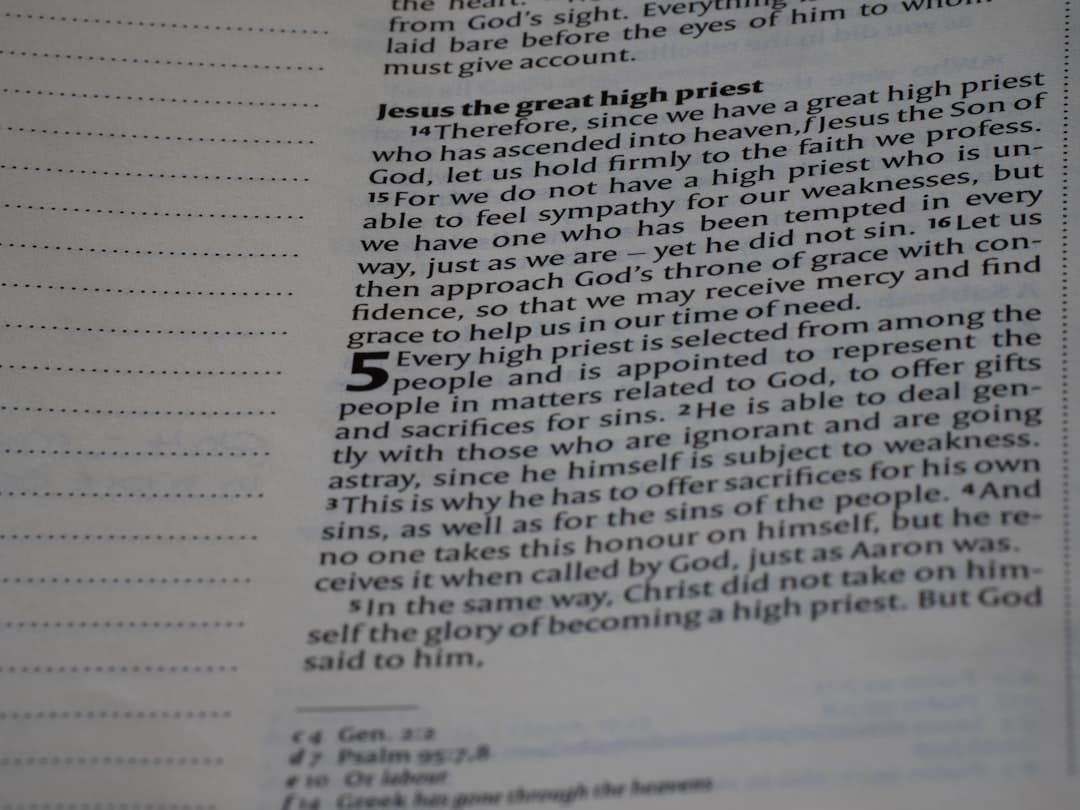 the heart.
from God's sight. Everything
laid bare before the eyes of him to whom
must give account.
Jesus the great high priest
14 Therefore, since we have a great high priest
who has ascended into heaven,f Jesus the Son of
God, let us hold firmly to the faith we profess.
15 For we do not have a high priest who is un-
able to feel sympathy for our weaknesses, but
we have one who has been tempted in every
way, just as we are – yet he did not sin. 16 Let us
then approach God's throne of grace with con-
fidence, so that we may receive mercy and find
grace to help us in our time of need.
5 Every high priest is selected from among the
people and is appointed to represent the
people in matters related to God, to offer gifts
and sacrifices for sins. 2 He is able to deal gen-
tly with those who are ignorant and are going
astray, since he himself is subject to weakness.
3 This is why he has to offer sacrifices for his own
sins, as well as for the sins of the people. 4 And
no one takes this honour on himself, but he re-
ceives it when called by God, just as Aaron was.
5 In the same way, Christ did not take on him-
self the glory of becoming a high priest. But God
said to him,
c 4 Gen. 2:2
d 7 Psalm 95:7,8
e 10 Or labour
f 14 Greek has gone through the heavens